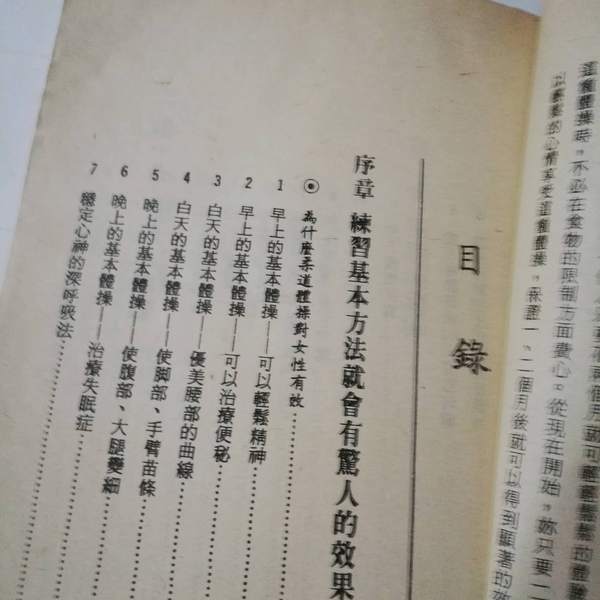 這種體操時，不必在食物的限制方面費心。從現在開始，妳只要一
以輕鬆的心情享受這種體操，保證一、二個月後就可以得到顯著的效
目錄
序章 練習基本方法就會有驚人的效果
⊙ 為什麼柔道體操對女性有效
1 早上的基本體操——可以輕鬆精神
2 早上的基本體操——可以治療便秘
3 白天的基本體操——優美腰部的曲線
4 白天的基本體操——使脚部、手臂苗條
5 晚上的基本體操——使腹部、大腿變細
6 晚上的基本體操——治療失眠症
7 穩定心神的深呼吸法